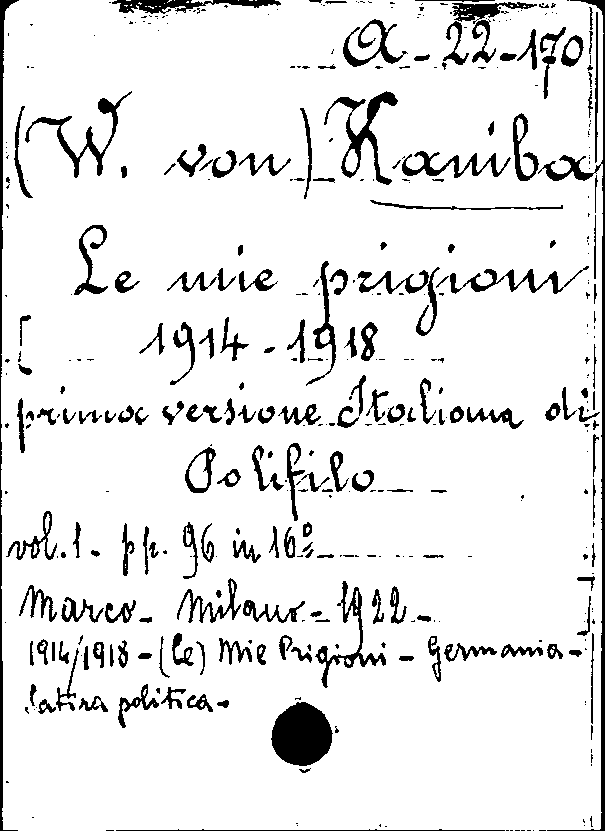 A-22-170
(W. von) Kaniba
Le mie prigioni
[ 1914-1918
prima versione Italiana di
Polifilo
vol. 1 - pp. 96 in 16º
Marco - Milano - 1922 -
1914/1918 - (Le) Mie Prigioni - Germania -
satira politica -